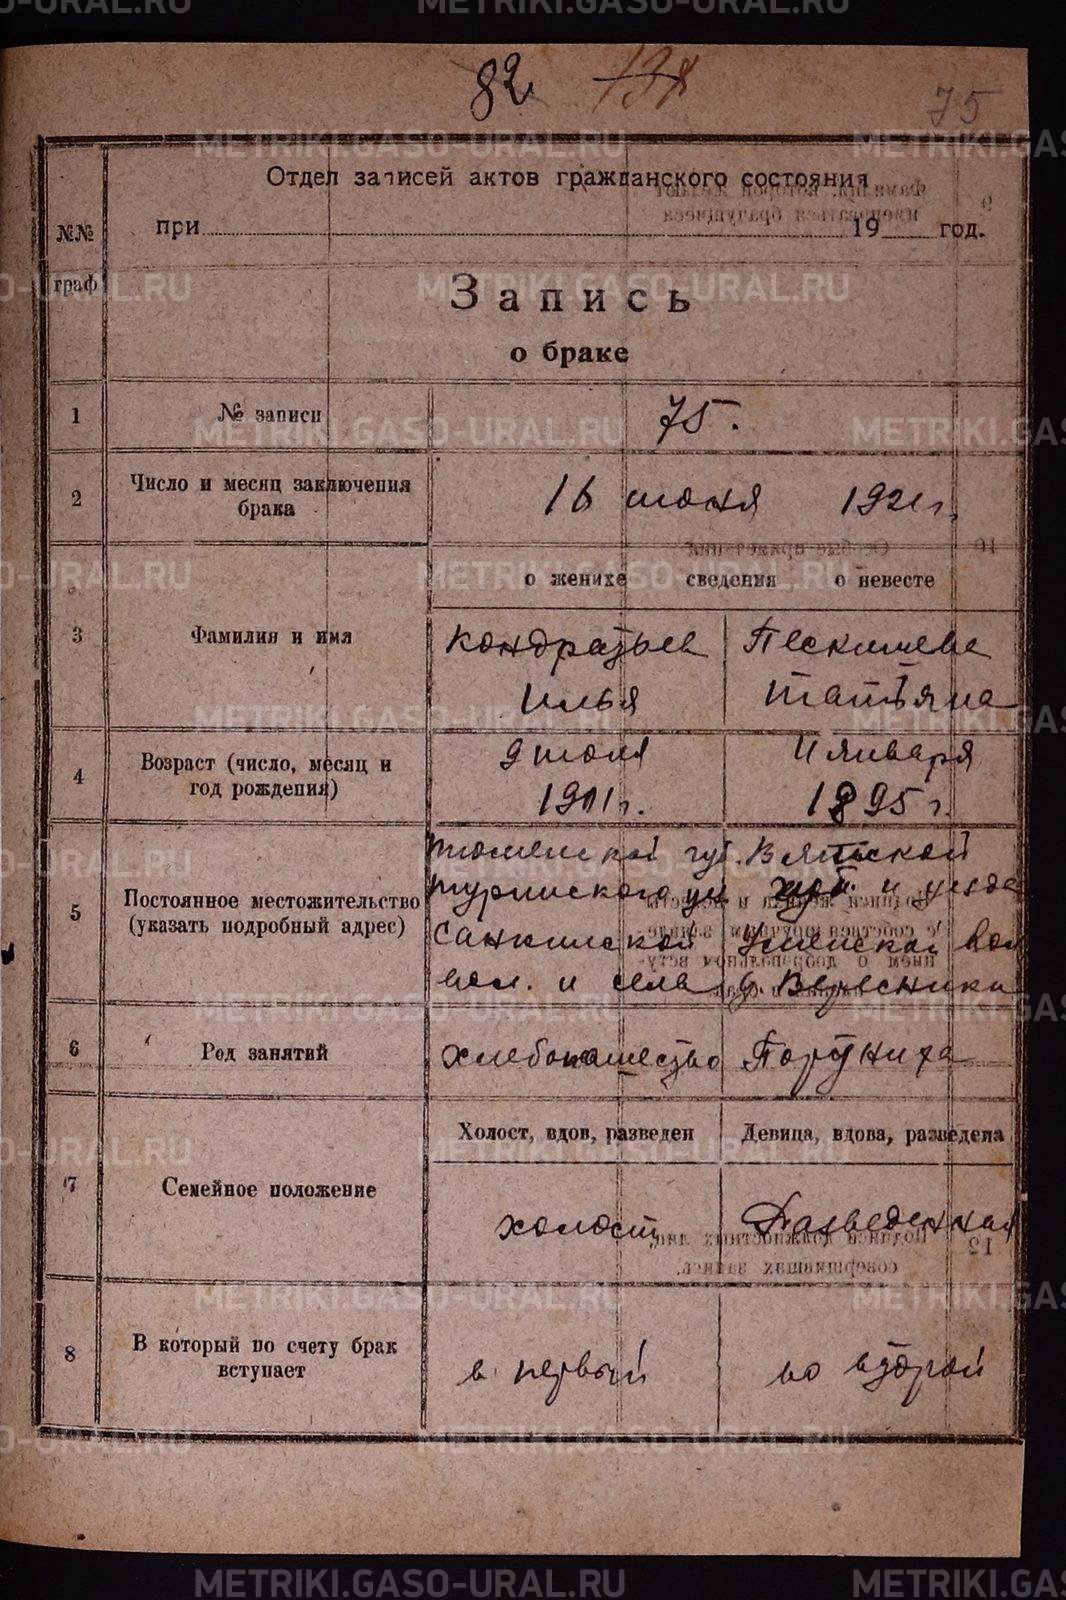 82 138
75
Отдел записей актов гражданского состояния
при 19 год.
№№
граф
Запись
о браке
1 № записи 75.
2 Число и месяц заключения
брака
16 июня 1921 г.
о женихе сведения о невесте
3 Фамилия и имя
Кондратьев
Илья
Татьяна
4 Возраст (число, месяц и
год рождения)
9 июля
1901 г.
11 января
1895 г.
5 Постоянное местожительство
(указать подробный адрес)
Тюменской губ.
Туринского уез
Санкинской
вол. и села
Вятской
губ. и уезда
вол
д Вересники
6 Род занятий
хлебопашество
Портниха
Холост, вдов, разведен
Девица, вдова, разведена
7 Семейное положение
холост
Разведенная
8 В который по счету брак
вступает
в первый
во второй
METRIKI.GASO-URAL.RU